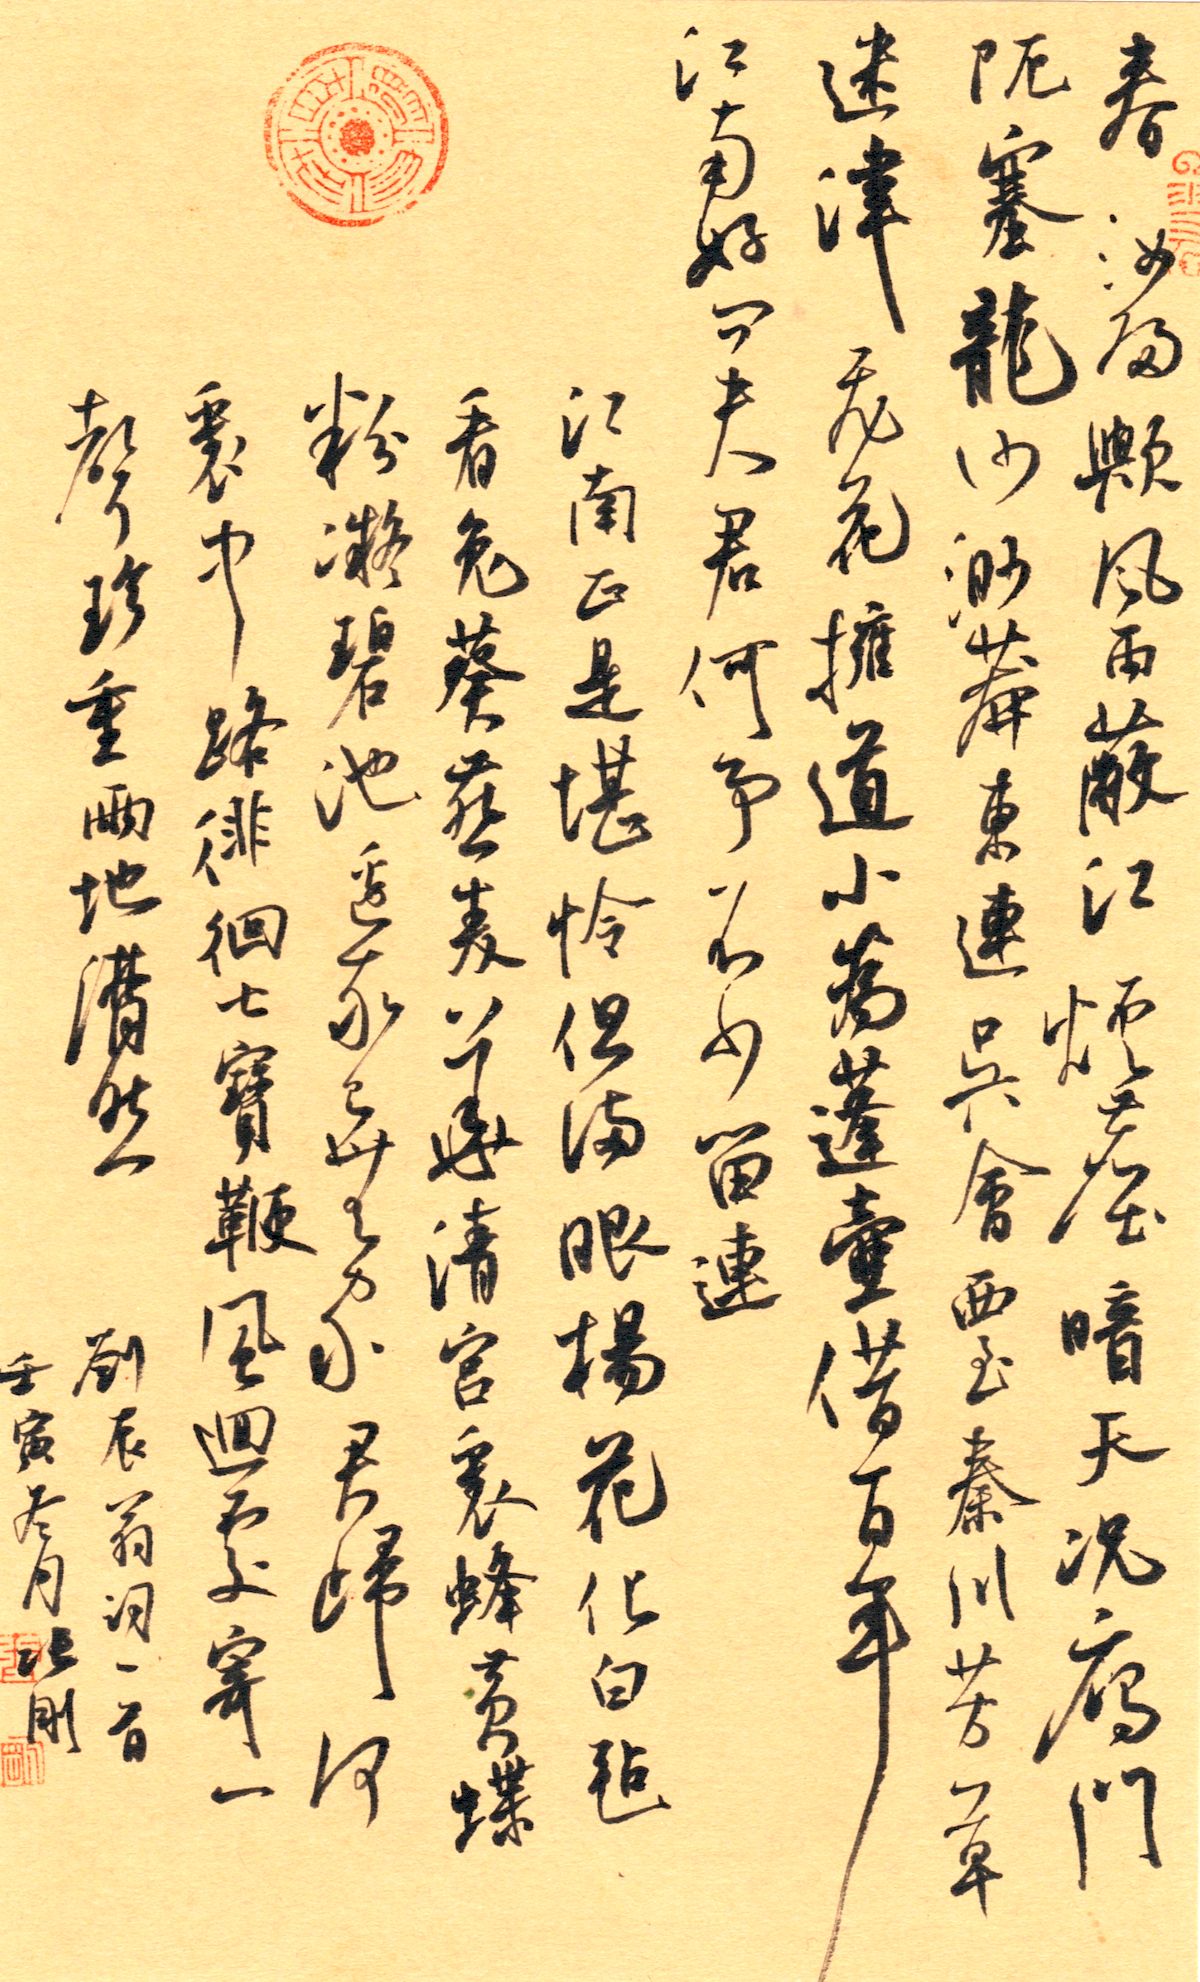 春汝歸歟風雨蔽江煙塵暗天況雁門
阨塞龍沙渺莽東連吳會西至秦川芳草
迷津飛花擁道小為蓬壺借百年
江南好問夫君何事不少留連
江南正是堪憐但滿眼楊花化白氈
看兔葵燕麥華清宮裏蜂黃蝶
粉凝碧池邊我已無家君歸何
裏中路徘徊七寶鞭風迴處寄一
聲珍重兩地潸然
劉辰翁詞一首
壬寅冬月張剛